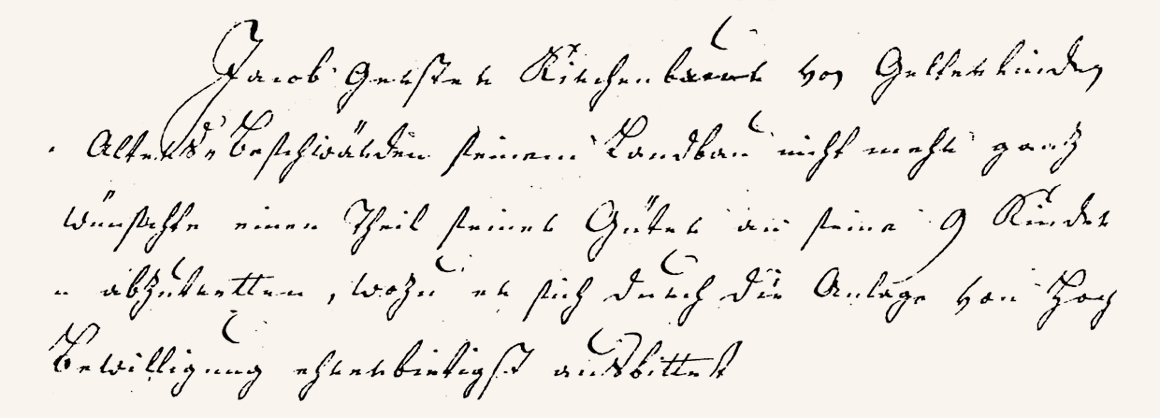 Jacob Gerster Kirchenbauer von Gelterkinden
Alters-Beschwärden seinem Landbau nicht mehr gantz
wünschte einen Theil seiner Güter an seine 9 Kinder
abzutretten, wozu er sich durch die Anlage von Hoch
Bewilligung ehrerbietigst ausbittet